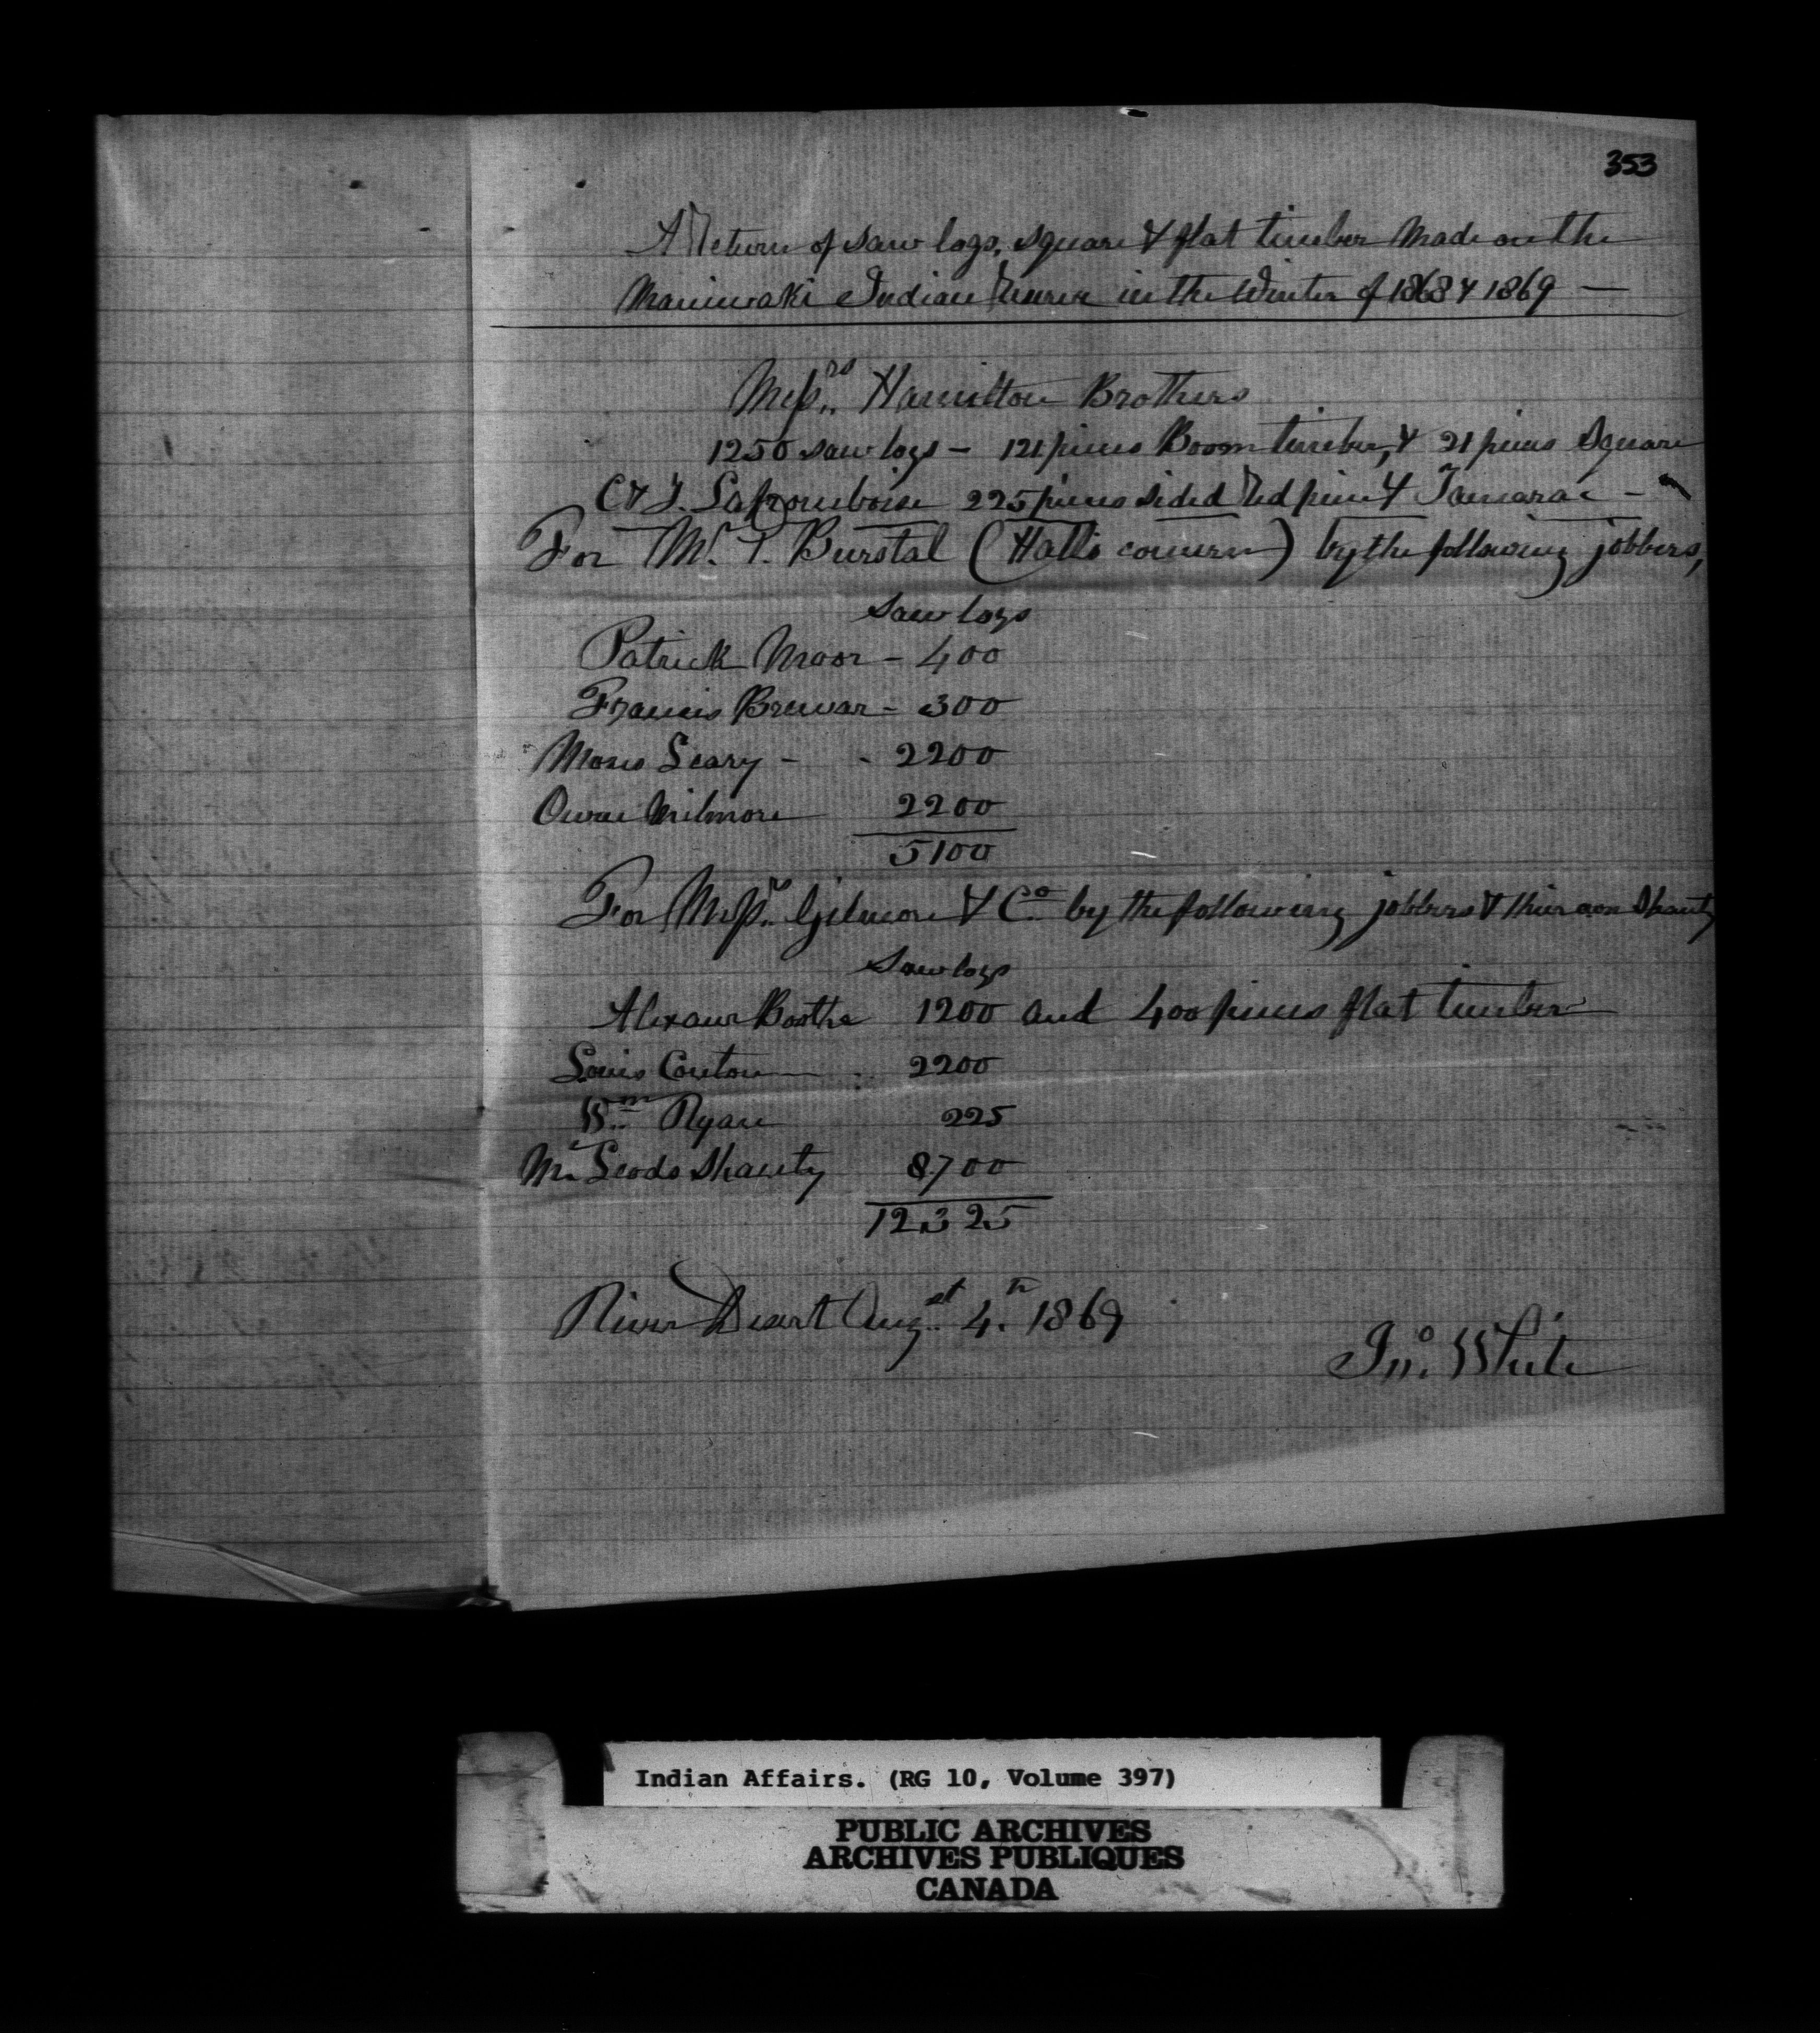 353
A Return of Saw logs, Square & flat timber Made on the
Maniwaki Indian Reserve in the Winter of 1868 & 1869 —
Messrs Hamilton Brothers
1250 saw logs — 121 pieces Boom timber, & 21 pieces Square
C & J. Laframboise 225 pieces sided Red pine & Tamarac —
For Mr. P. Burstal (Halls concern) by the following jobbers,
Saw logs
Patrick Moor — 400
Francis Brewar — 300
Moses Leary - - 2200
Owen Milmore 2200
5100
For Messrs Gilmore & Co by the following jobbers & their own Shanty
Saw logs
Boothe 1200 and 400 pieces flat timber
Louis 2200
Wm Ryan 225
Mc Leods Shanty 8700
12325
River Desert Augst 4th 1869
Jno. White
Indian Affairs. (RG 10, Volume 397)
PUBLIC ARCHIVES
ARCHIVES PUBLIQUES
CANADA